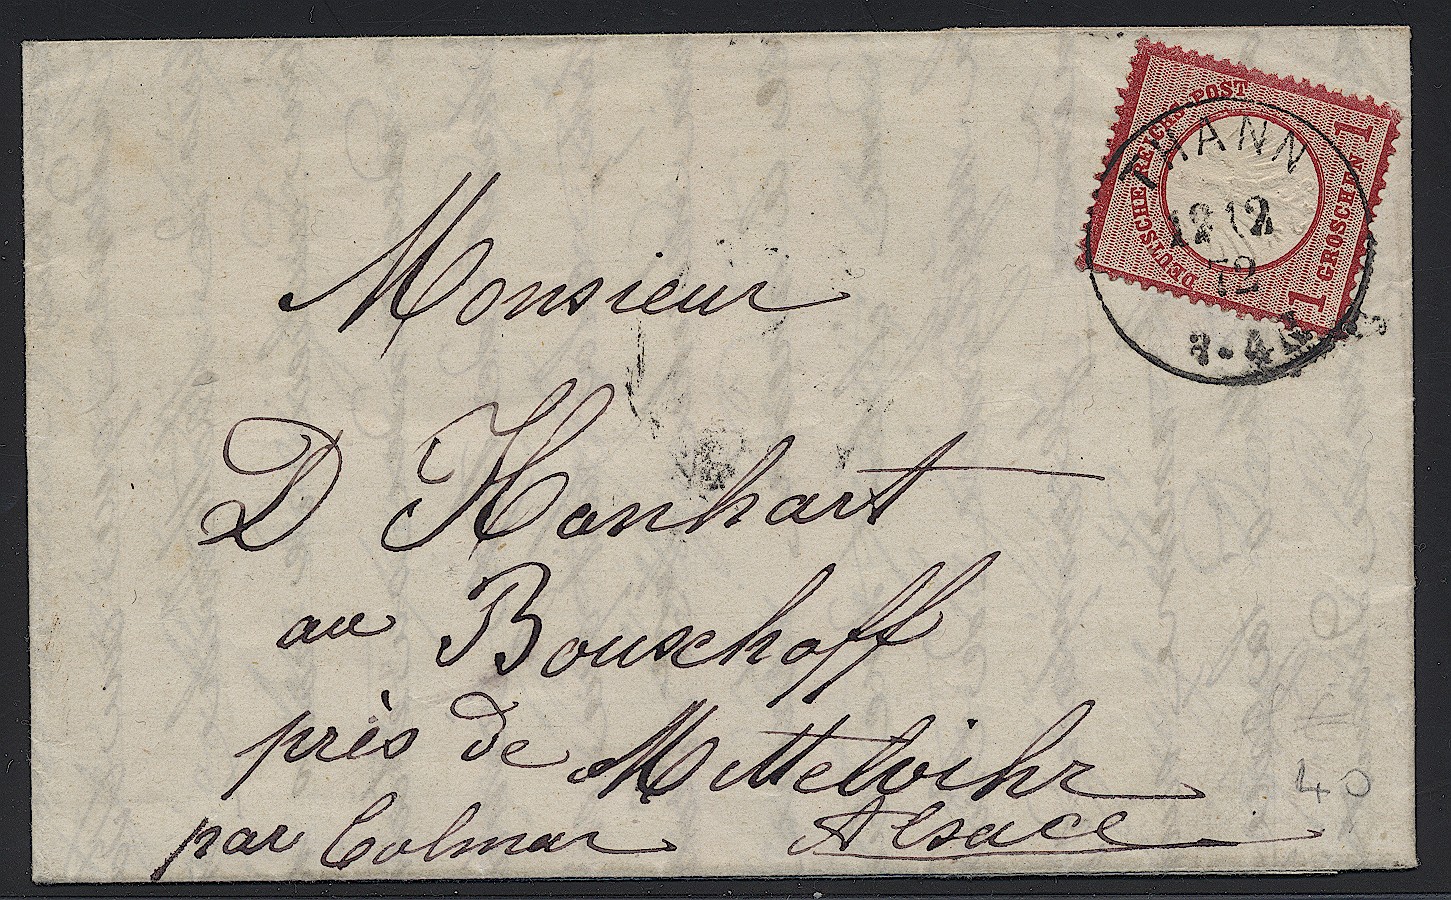 DEUTSCHE REICHS-POST
1 GROSCHEN 1
THANN
12 12
72
Monsieur
D Honhart
au Bouschoff
près de Mittelvihr
par Colmar Alsace
40